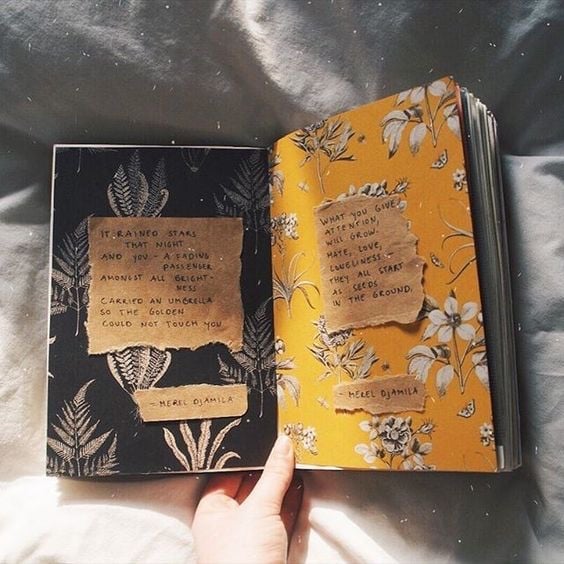 IT RAINED STARS
THAT NIGHT
AND YOU - A FADING
PASSENGER
AMONGST ALL BRIGHT-
NESS
CARRIED AN UMBRELLA
SO THE GOLDEN
COULD NOT TOUCH YOU
- MEREL DJAMILA
WHAT YOU GIVE
ATTENTION,
WILL GROW.
HATE, LOVE,
LONELINESS -
THEY ALL START
AS SEEDS
IN THE GROUND.
- MEREL DJAMILA